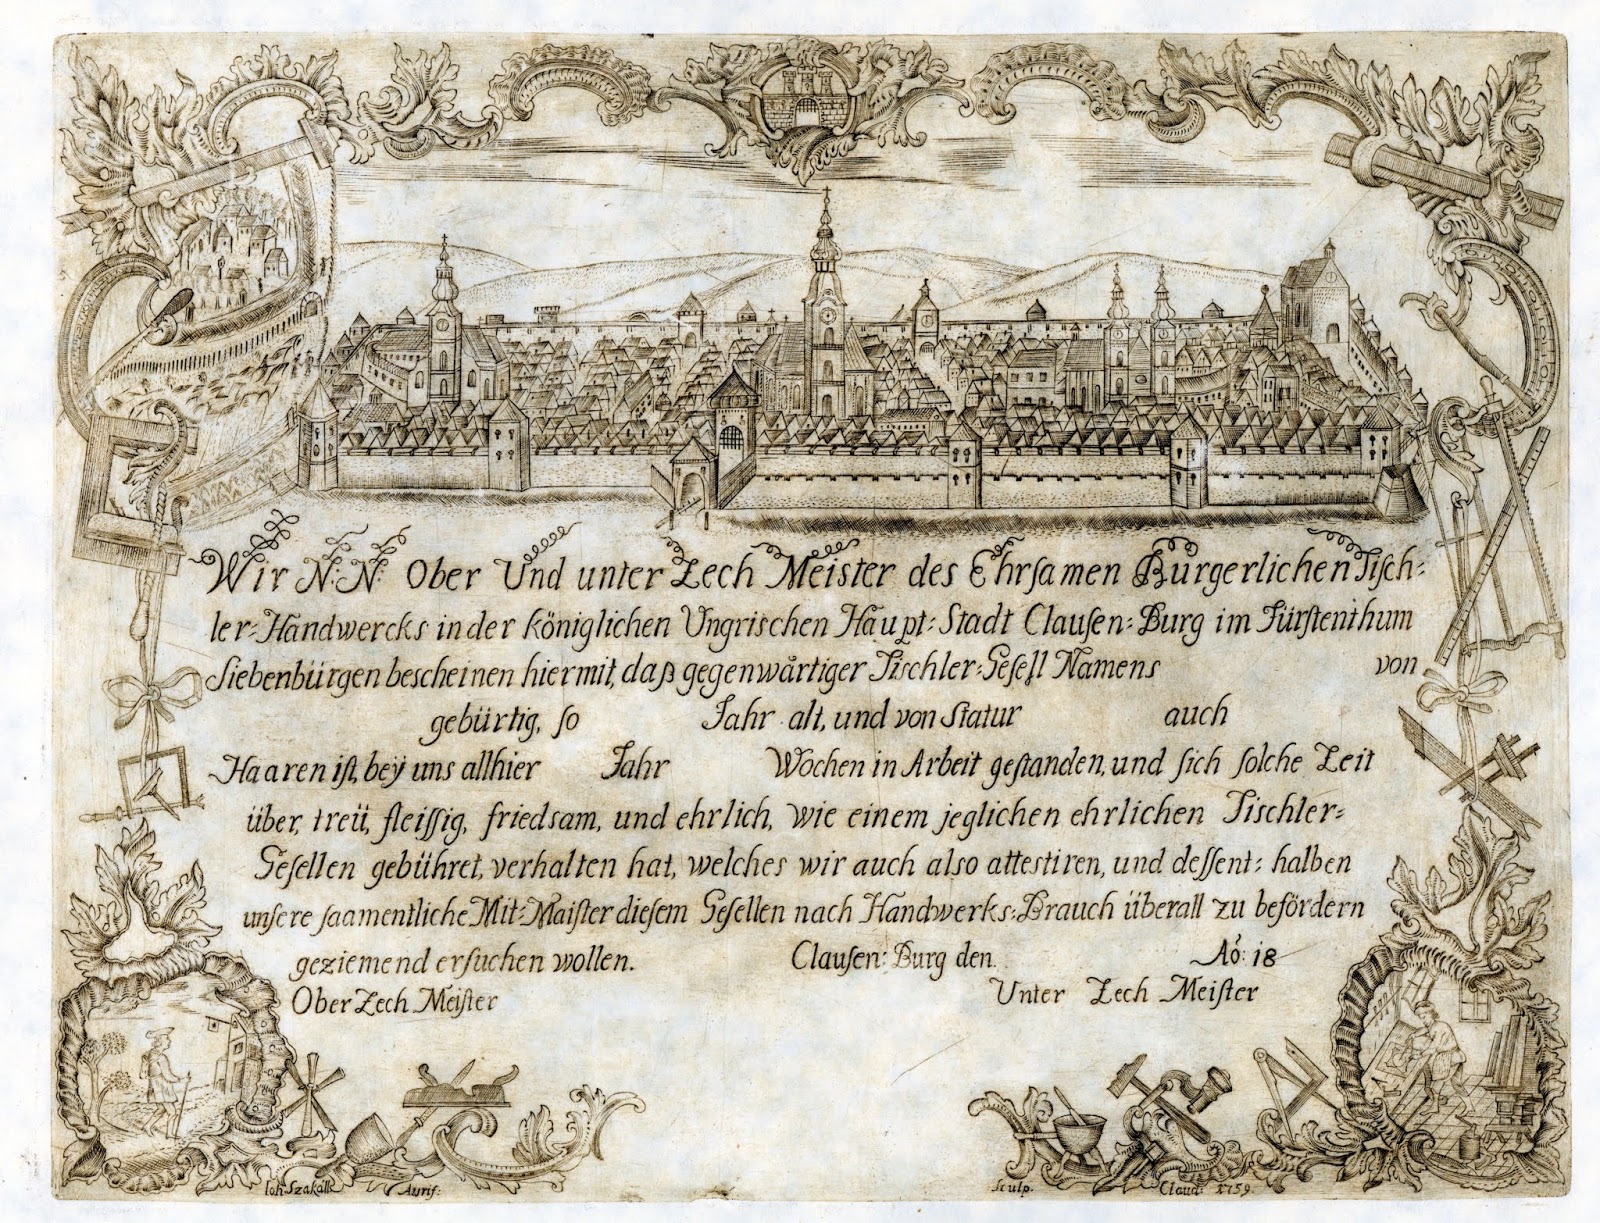 Wir N: N: Ober Und unter Zech Meister des Ehrsamen Bürgerlichen Tisch=
ler=Handwercks in der königlichen Ungrischen Haupt=Stadt Clausen=Burg im Fürstenthum
Siebenbürgen bescheinen hiermit, daß gegenwärtiger Tischler=Gesell Namens von
gebürtig, so Jahr alt, und von Statur auch
Haaren ist, beÿ uns allhier Jahr Wochen in Arbeit gestanden, und sich solche Zeit
über, treü, fleissig, friedsam, und ehrlich, wie einem jeglichen ehrlichen Tischler=
Gesellen gebühret, verhalten hat, welches wir auch also attestiren, und dessent=halben
unsere saamentliche Mit=Maister diesem Gesellen nach Handwerks=Brauch überall zu befördern
geziemend ersuchen wollen. Clausen=Burg den. Aō: 18
Ober Zech Meister Unter Zech Meister
Joh Szakall Aurif: sculp. Claud: 1759